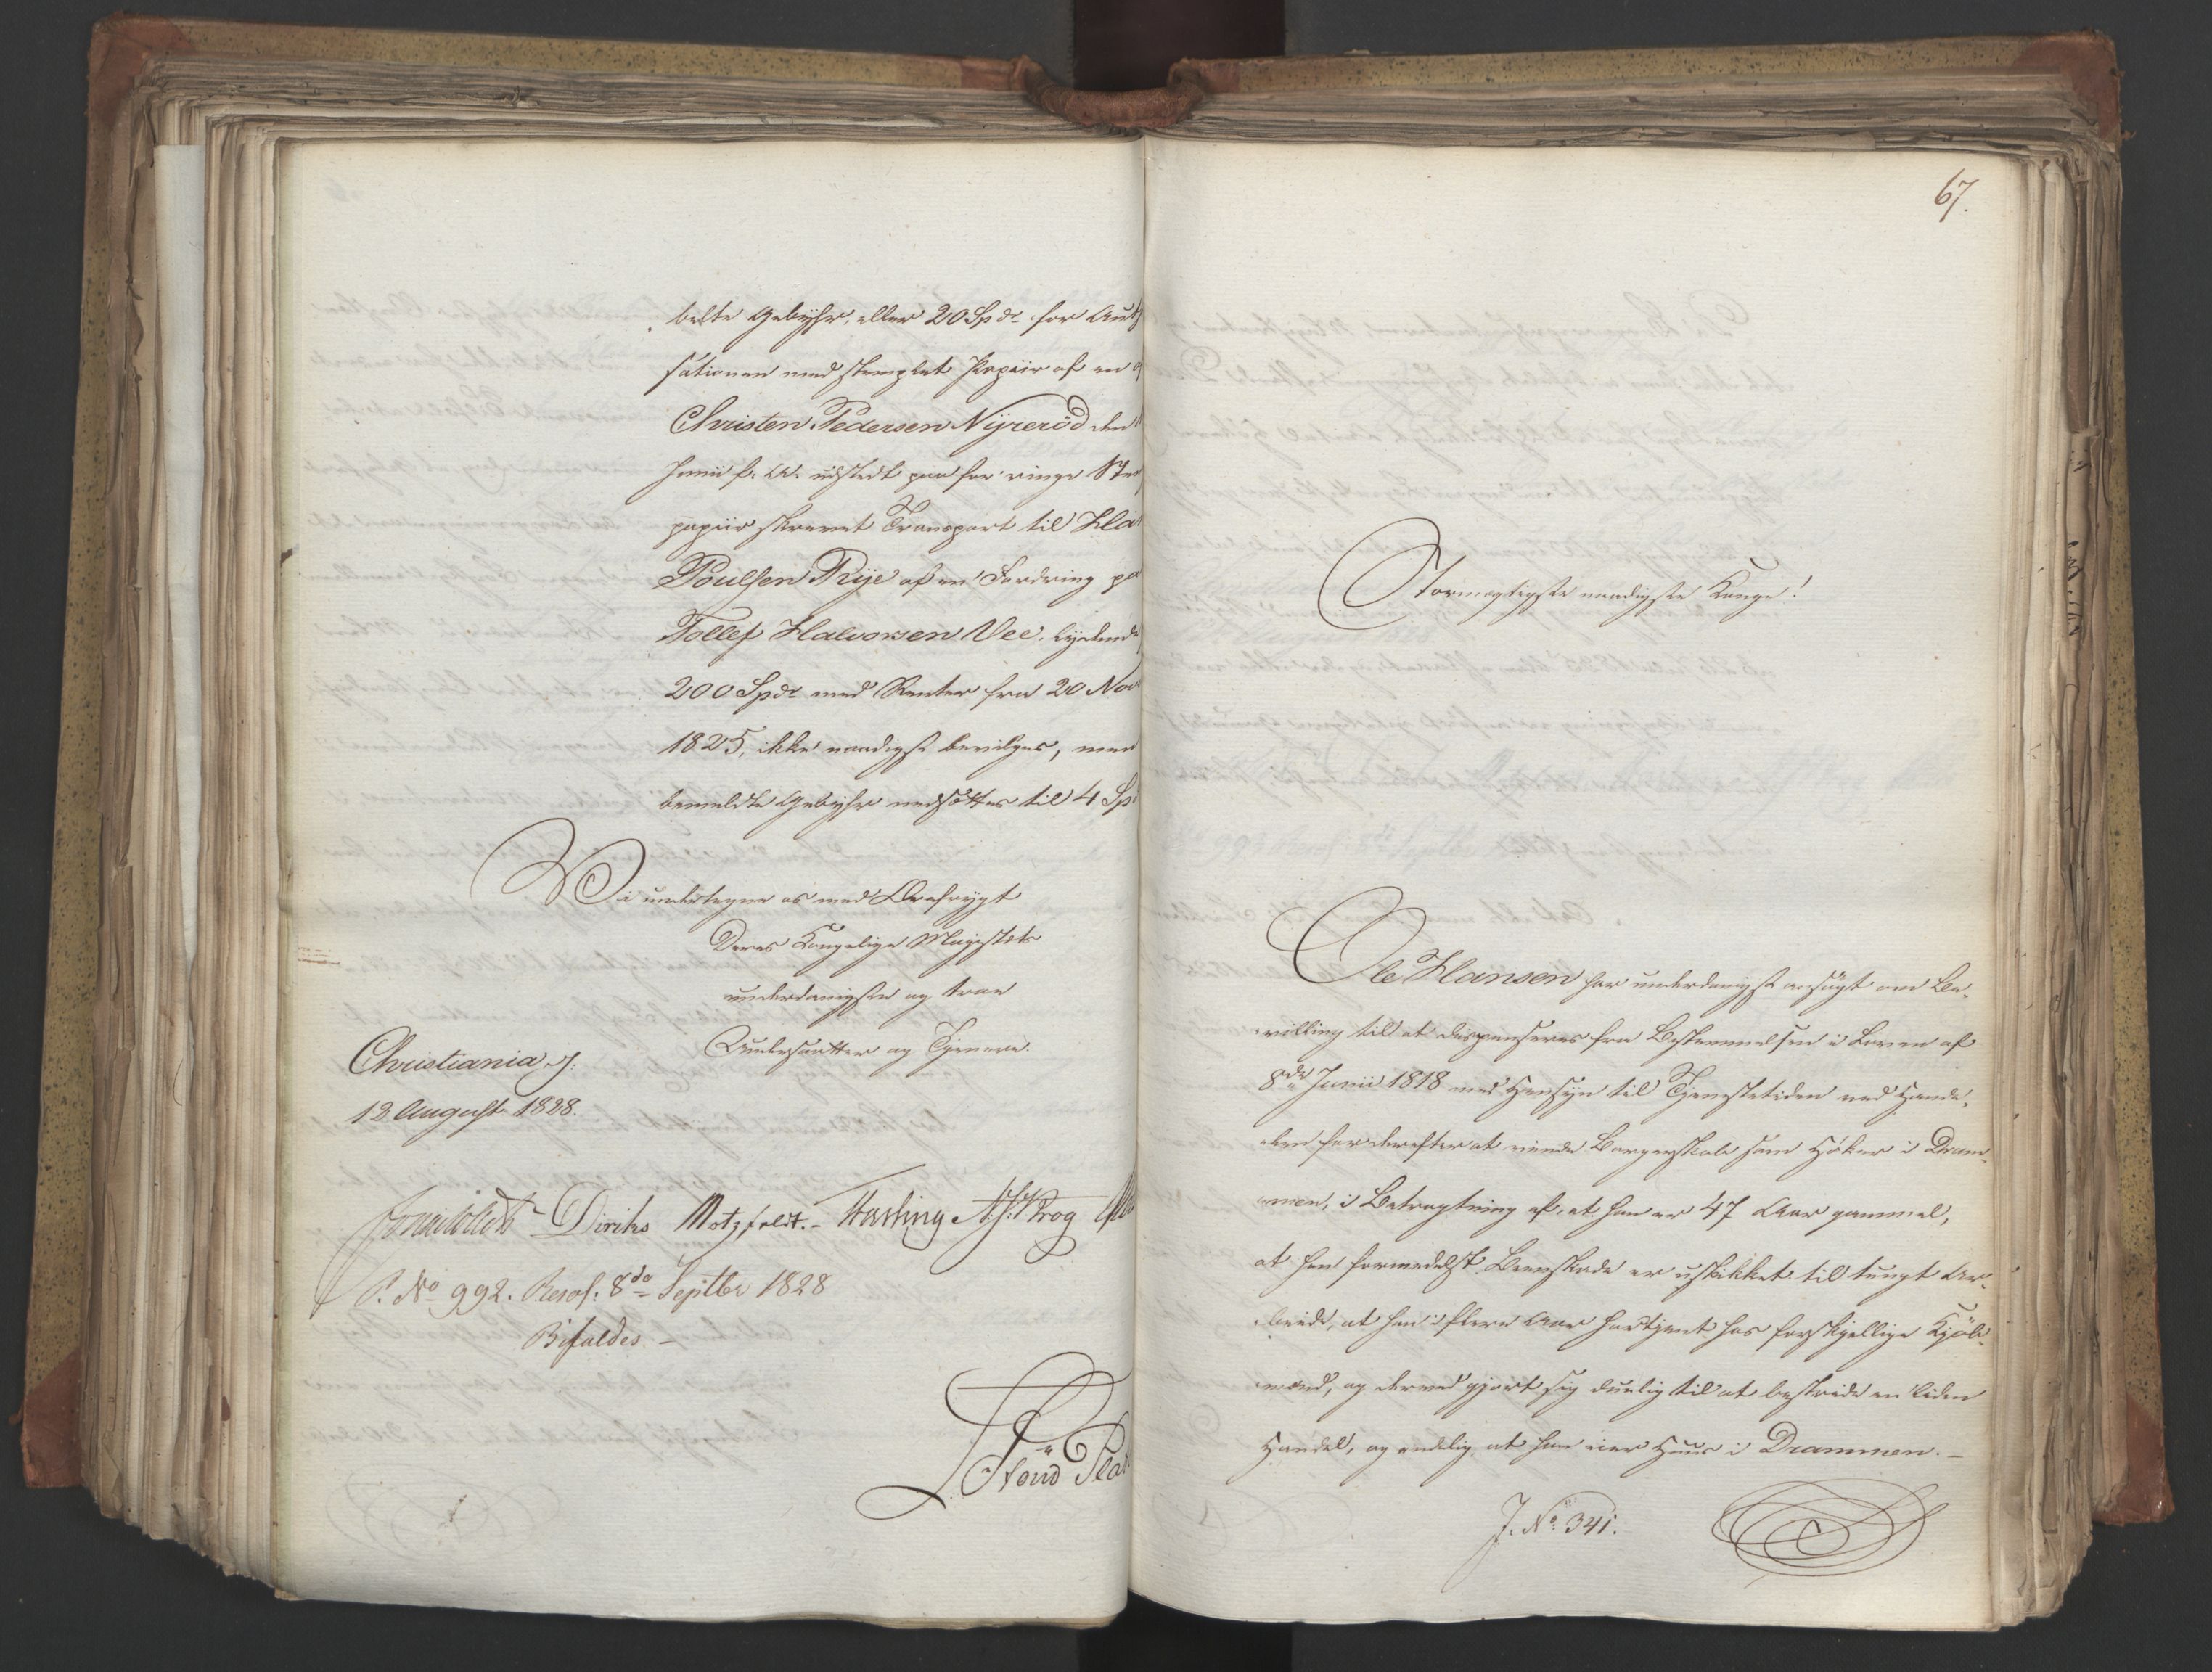 belte Gebyhr, eller 20 Spdr for Aut
sationen med stemplet Papiir af en
Christen Pedersen Nyreröd den
Junii f. A. udstedt paa for ringe Ste
papiir skrevet Transport til Kla
Poulsen Rye af en Fordring pa
Tollef Halvorsen Vee, lydende
200 Spdr med Renter fra 20 Nov
1825, ikke naadigst bevilges, men
bemeldte Gebyhr nedsættes til 4 Sp
Vi undertegne os med Ærefrygt
Deres Kongelige Majestæts
underdanigste og troe
Undersaatter og Tjenere.
Christiania d.
12 August 1828.
Diriks Motzfeldt. Hasting Krog
P. No 992. Resol: 8de Septbr 1828
Bifaldes.
67.
Stormægtigste naadigste Konge!
Ole Hansen har underdanigst ansögt om Be-
villing til at dispenseres fra Bestemmelsen i Loven af
8de Junii 1818 med Hensyn til Tjenestetiden ved Hande-
len for derefter at vinde Borgerskab som Höker i Dram-
men, i Betragtning af, at han er 47 Aar gammel,
at han formedelst Beenskade er uskikket til tungt Ar-
beide, at han i flere Aar har tjent hos forskjellige Kjöb-
mænd, og derved gjort sig duelig til at bestride en liden
Handel, og endelig at han eier Huus i Drammen.
J. No 341.